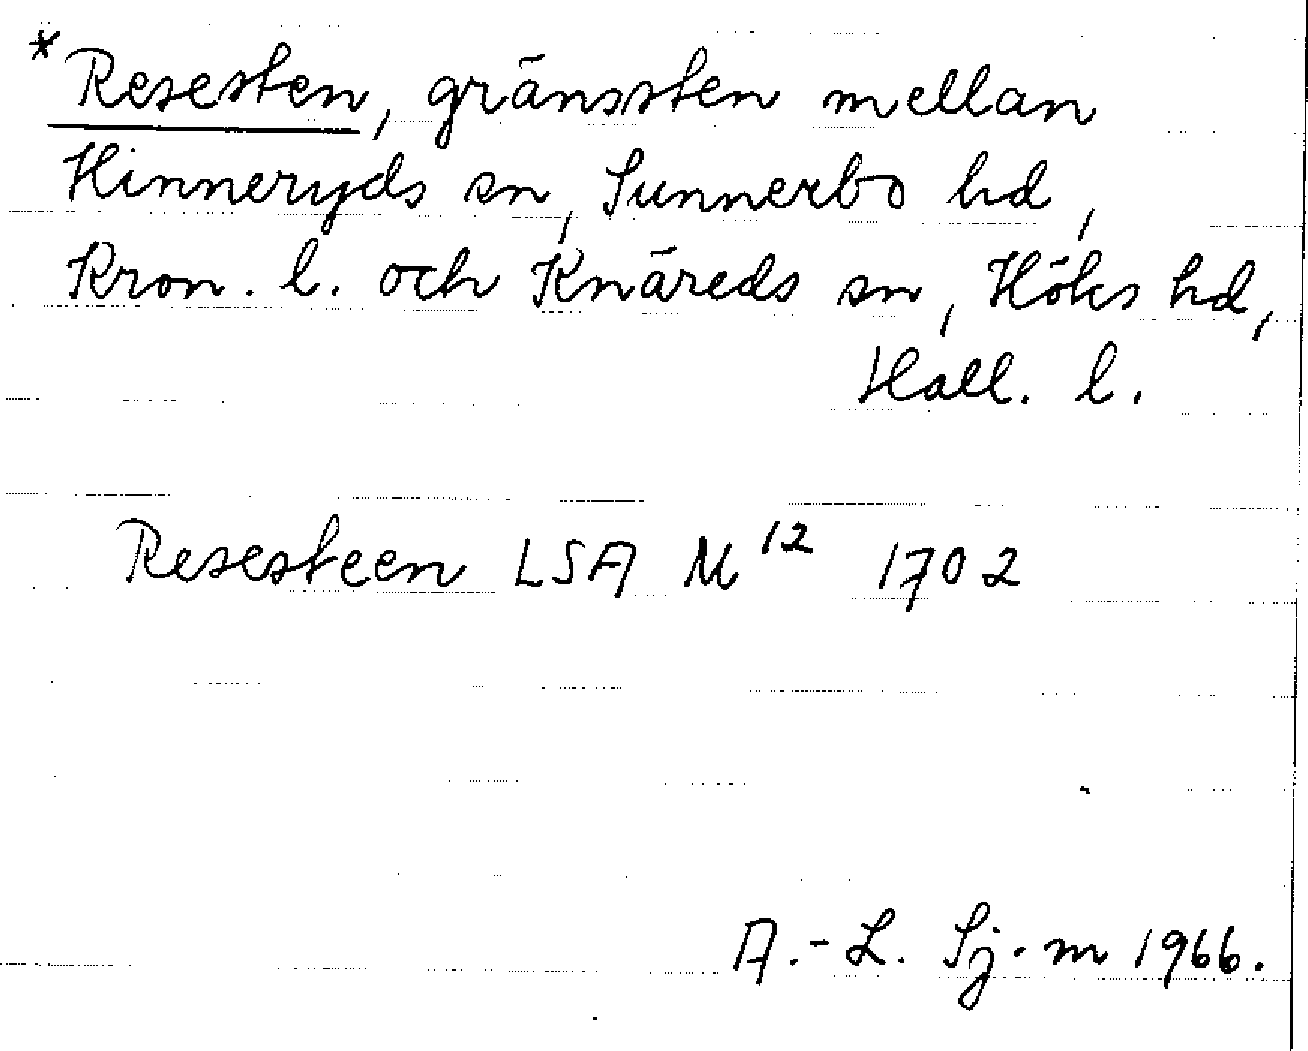 *Resesten, gränssten mellan
Hinneryds sn, Sunnerbo hd,
Kron. l. och Knäreds sn, Höks hd,
Hall. l.
Resesteen LSA M 12 1702
A.-L. Sj.m 1966.